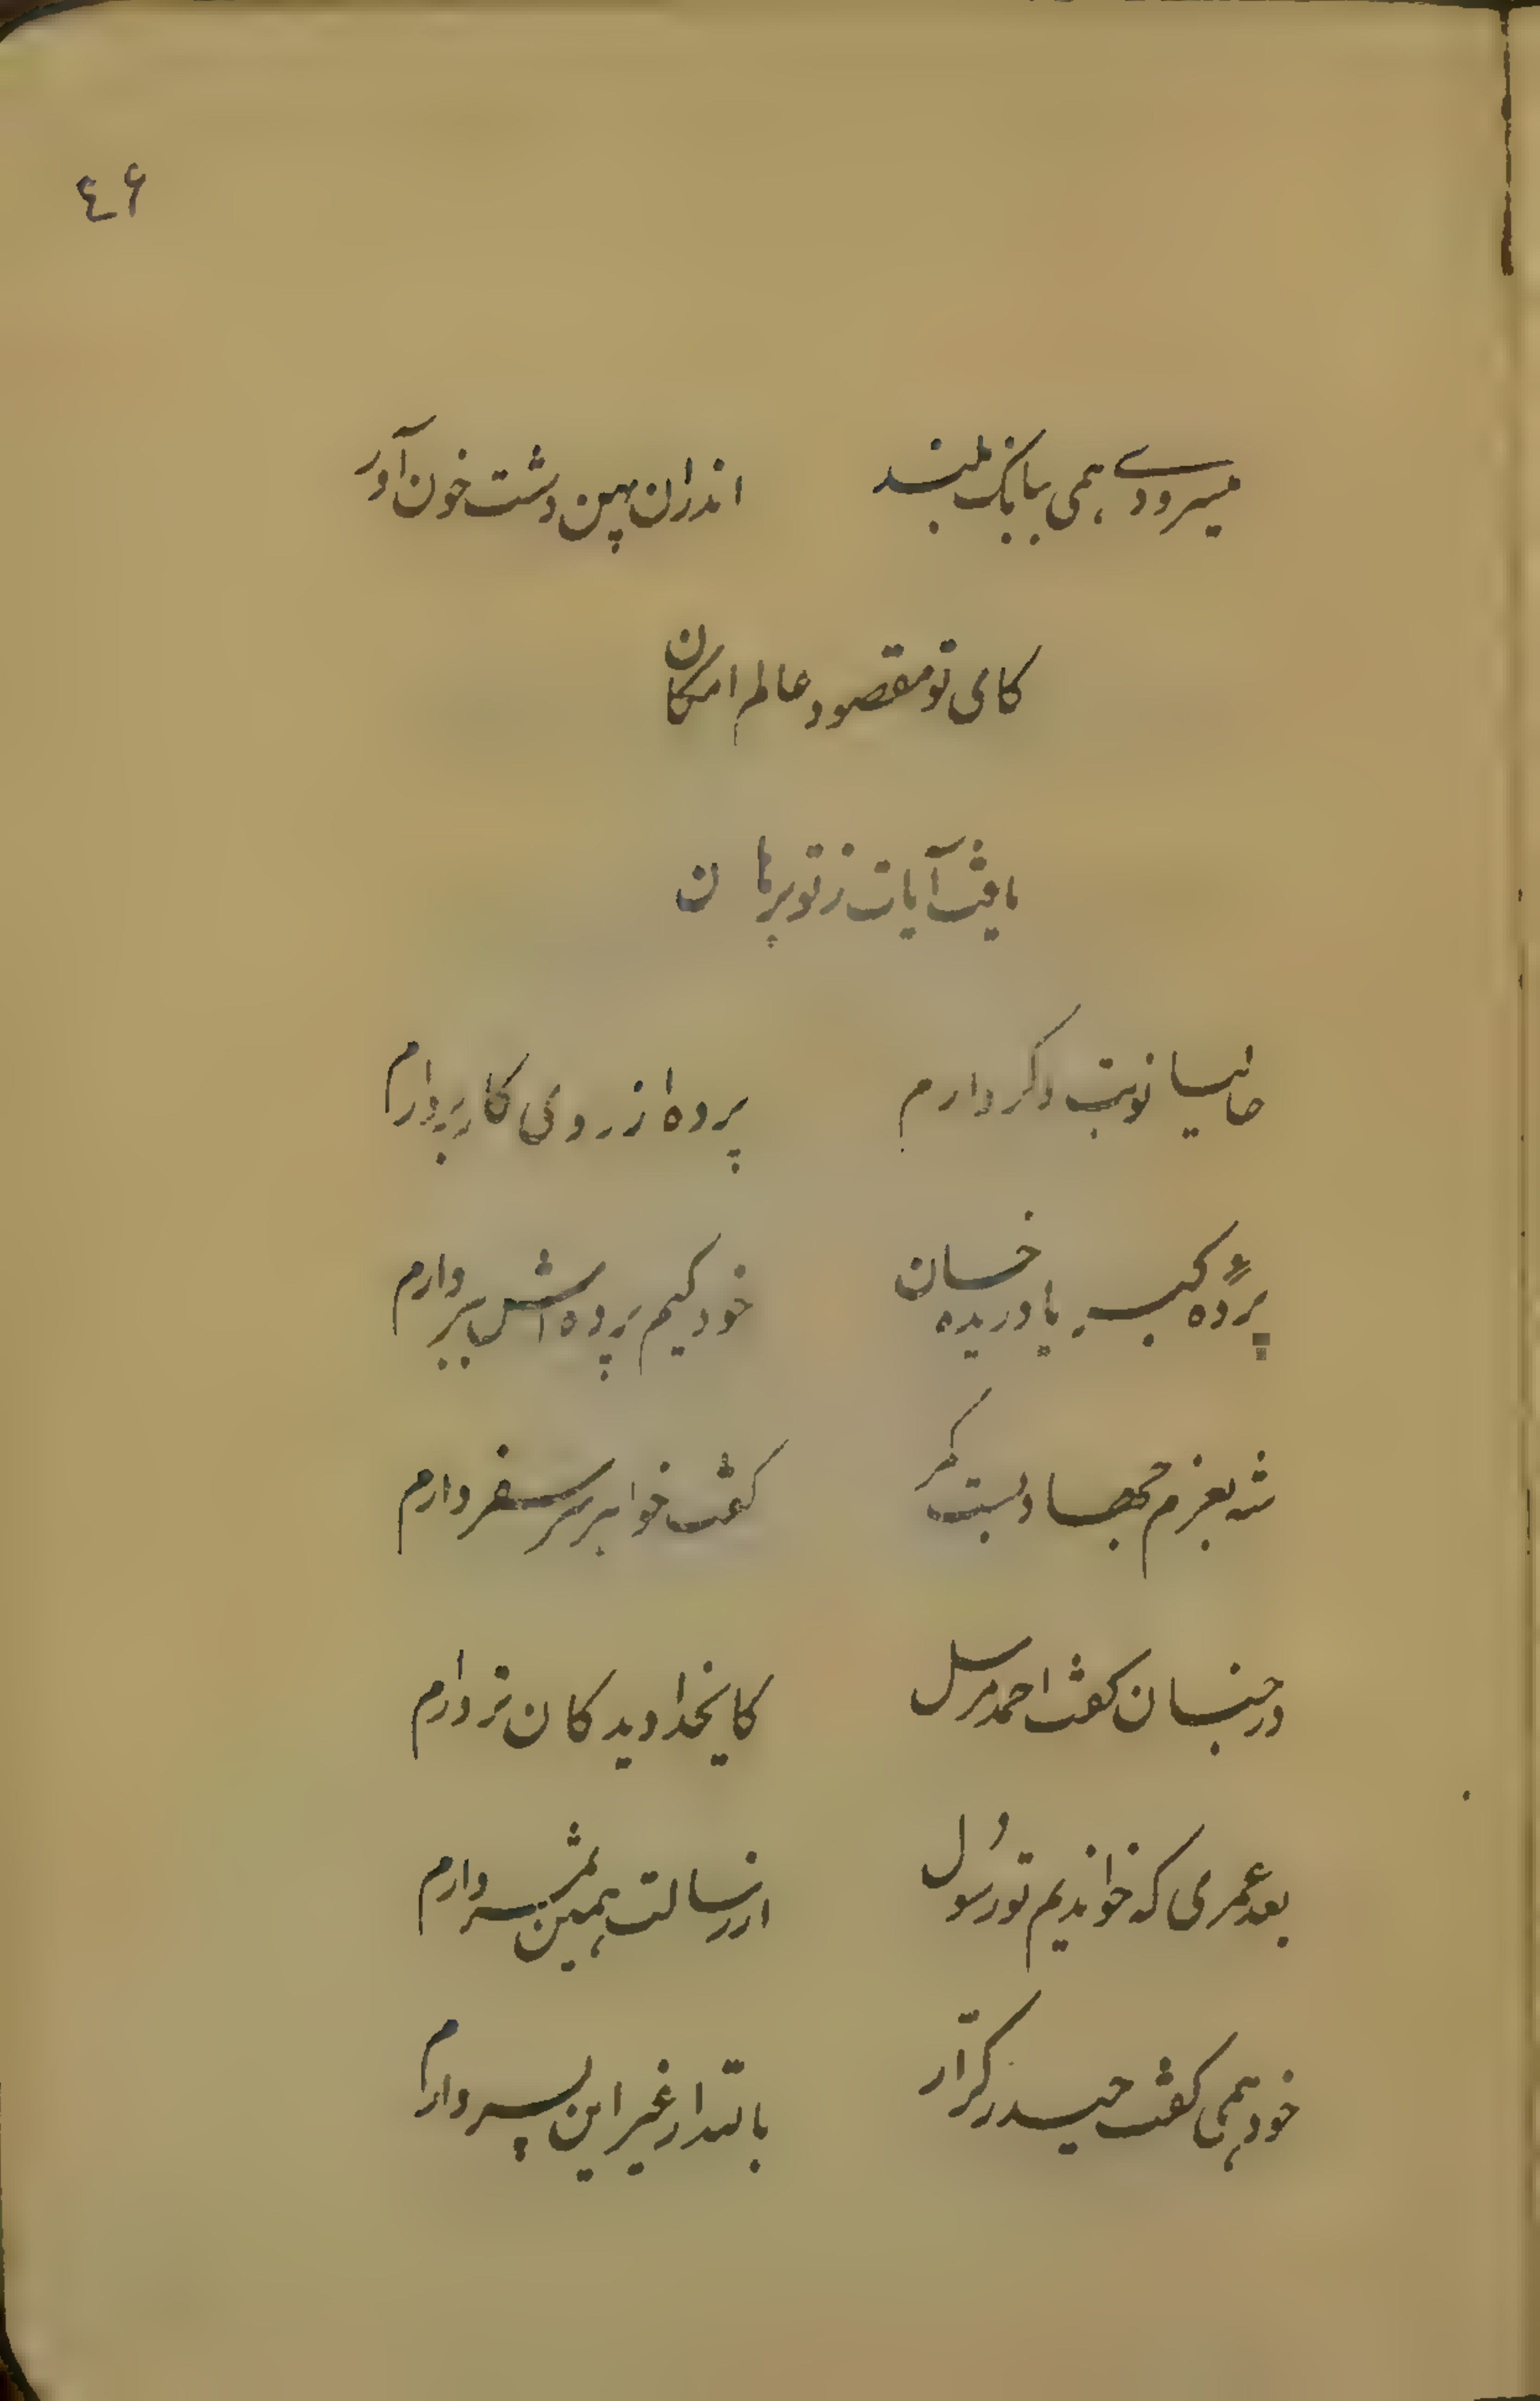 ٤۶
میسرودے همی ببانک بلند اندران پهن دشت خون آور
کای تو مقصود عالم امکان
یافت آیات ز تو برهان
حالیا نوبت دکر دارم پرده از روی کار بردارم
پرده کبریا دریده خسان خود کیم پرده اش بردارم
شه بعزم جهاد بست کمر کفت خواهر سر سفر دارم
در جنان کفت احمد مرسل کایخدا دیدکان تر دارم
بعد عمری که خواندیم تو رسول از رسالت همین ثمر دارم
خود همی کفت حیدر کرّار بالله ار غیر این پسر دارم